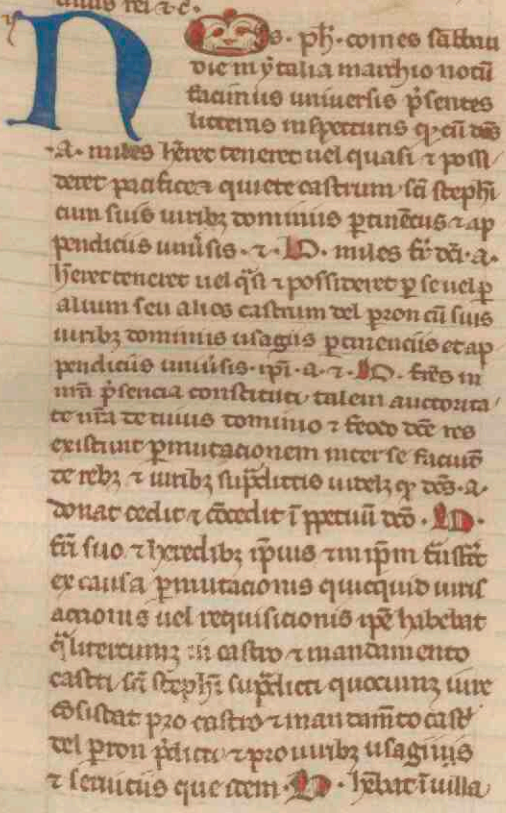 Nos. ph̄. comes sabbau
die in ẏtalia marchio notū
facimus universis p̄sentes
litteras inspecturis q, cū dc̄s
.a. miles h̄eret teneret uel quasi ⁊ possi
deret pacifice ⁊ quiete castrum sc̄i stephi
cum suis iuribꝫ dominiis ꝑtinēciis ⁊ ap
pendiciis univ̄sis. ⁊. miles fr̄ dc̄i. a.
h̄eret teneret uel q̄si ⁊ possideret ꝑ se uel ꝑ
alium seu alios castrum del ꝑron cū suis
iuribꝫ dominiis usagiis ꝑtinenciis et ap
pendiciis univ̄sis. ip̄i .a. ⁊. fr̄es in
nr̄a p̄sencia constituti, talem auctorita
te nr̄a de cuius dominio ⁊ feodo dc̄e res
existunt ꝑmutacionem inter se faciūt
de rebꝫ ⁊ iuribꝫ sup̄dictis uidelꝫ q, dc̄s .a.
donat cedit ⁊ cōcedit ī ꝑpetuū dc̄o .
fr̄i suo ⁊ heredibꝫ ip̄ius ⁊ in ip̄m tr̄nsfert
ex causa ꝑmutacionis quicquid iuris
actionis uel requisicionis ip̄e habebat
q̄litercumqꝫ in castro ⁊ mandamento
castri sc̄i steph̄i sup̄dicti quocumqꝫ iure
cōsistat pro castro ⁊ mandam̄to cast̄
del ꝑron p̄dicti ⁊ pro iuribꝫ usagiis
⁊ seruiciis que idem . h̄ebat ī uilla